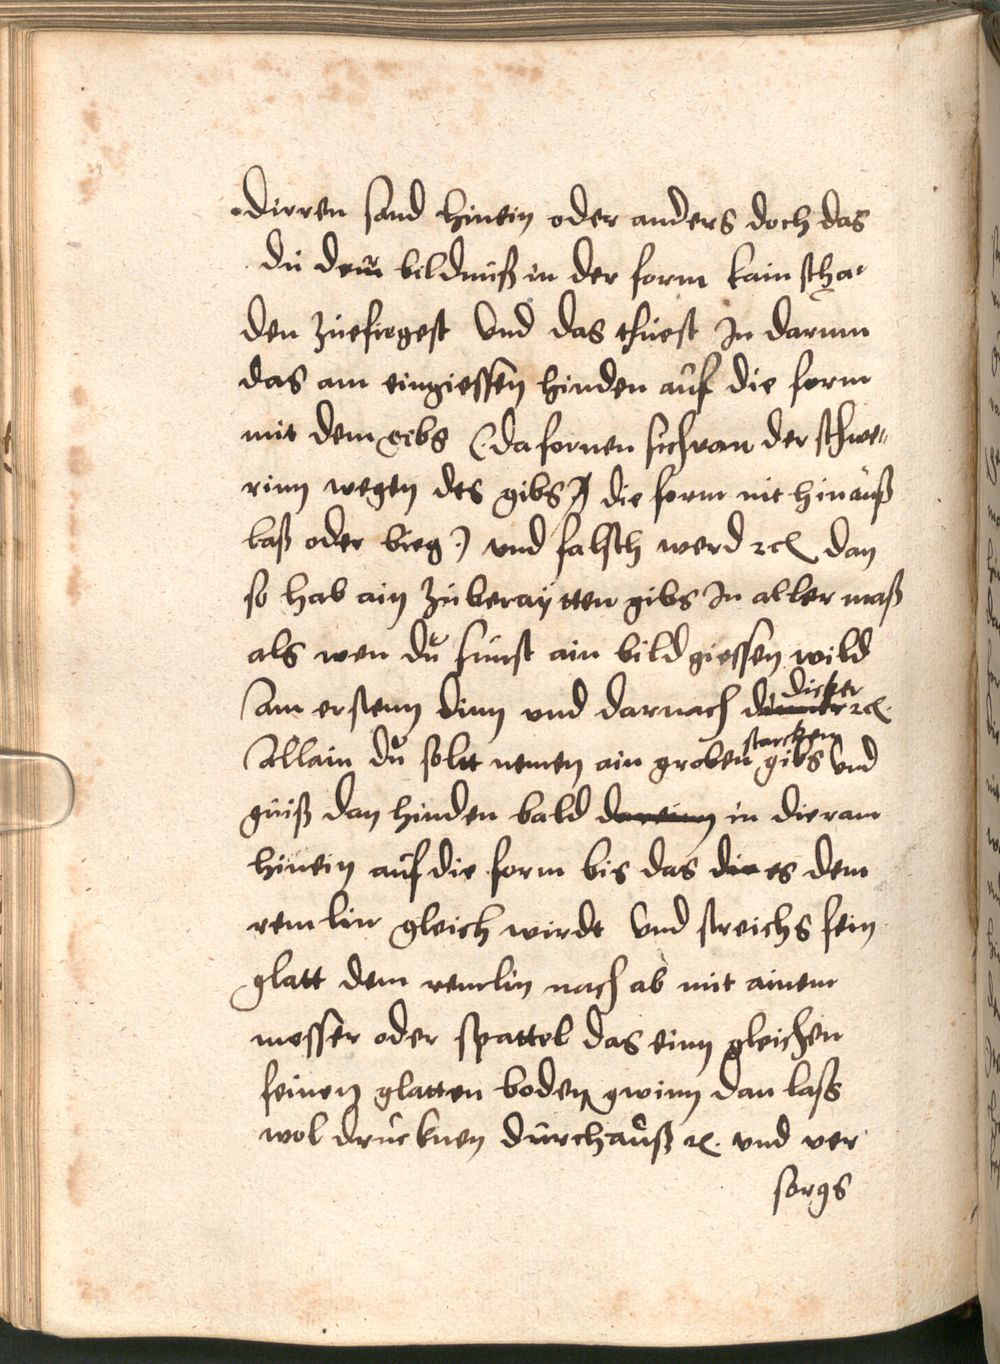 dirren sand hinein oder anders doch das
du dem bildnuß in der form kain scha-
den zuefiegest Und das thuest In darumn
das am eingiessen hinden auf die form
mit dem gibs (da fornen sich von der schwe-
rinn wegen des gibs die form nit hinauß
laß oder bieg) und falsch werd etc dan
so hab ain zuberaytten gibs In aller maß
als wen du sunst ain bild giessen wild
Am erstenn dinn und darnach dinner dicker etc.
Allain du solt nemen ain groben starcken gibs und
guiß dan hinden bald darein in die ram
hinein auf die form bis das die es dem
remlin gleich wirdt Und streichs fein
glatt dem remlin nach ab mit ainem
messer oder spattel das einn gleichen
feinen glatten boden gwinn dan laß
wol drucknen durchauß etc. und ver
sorgs